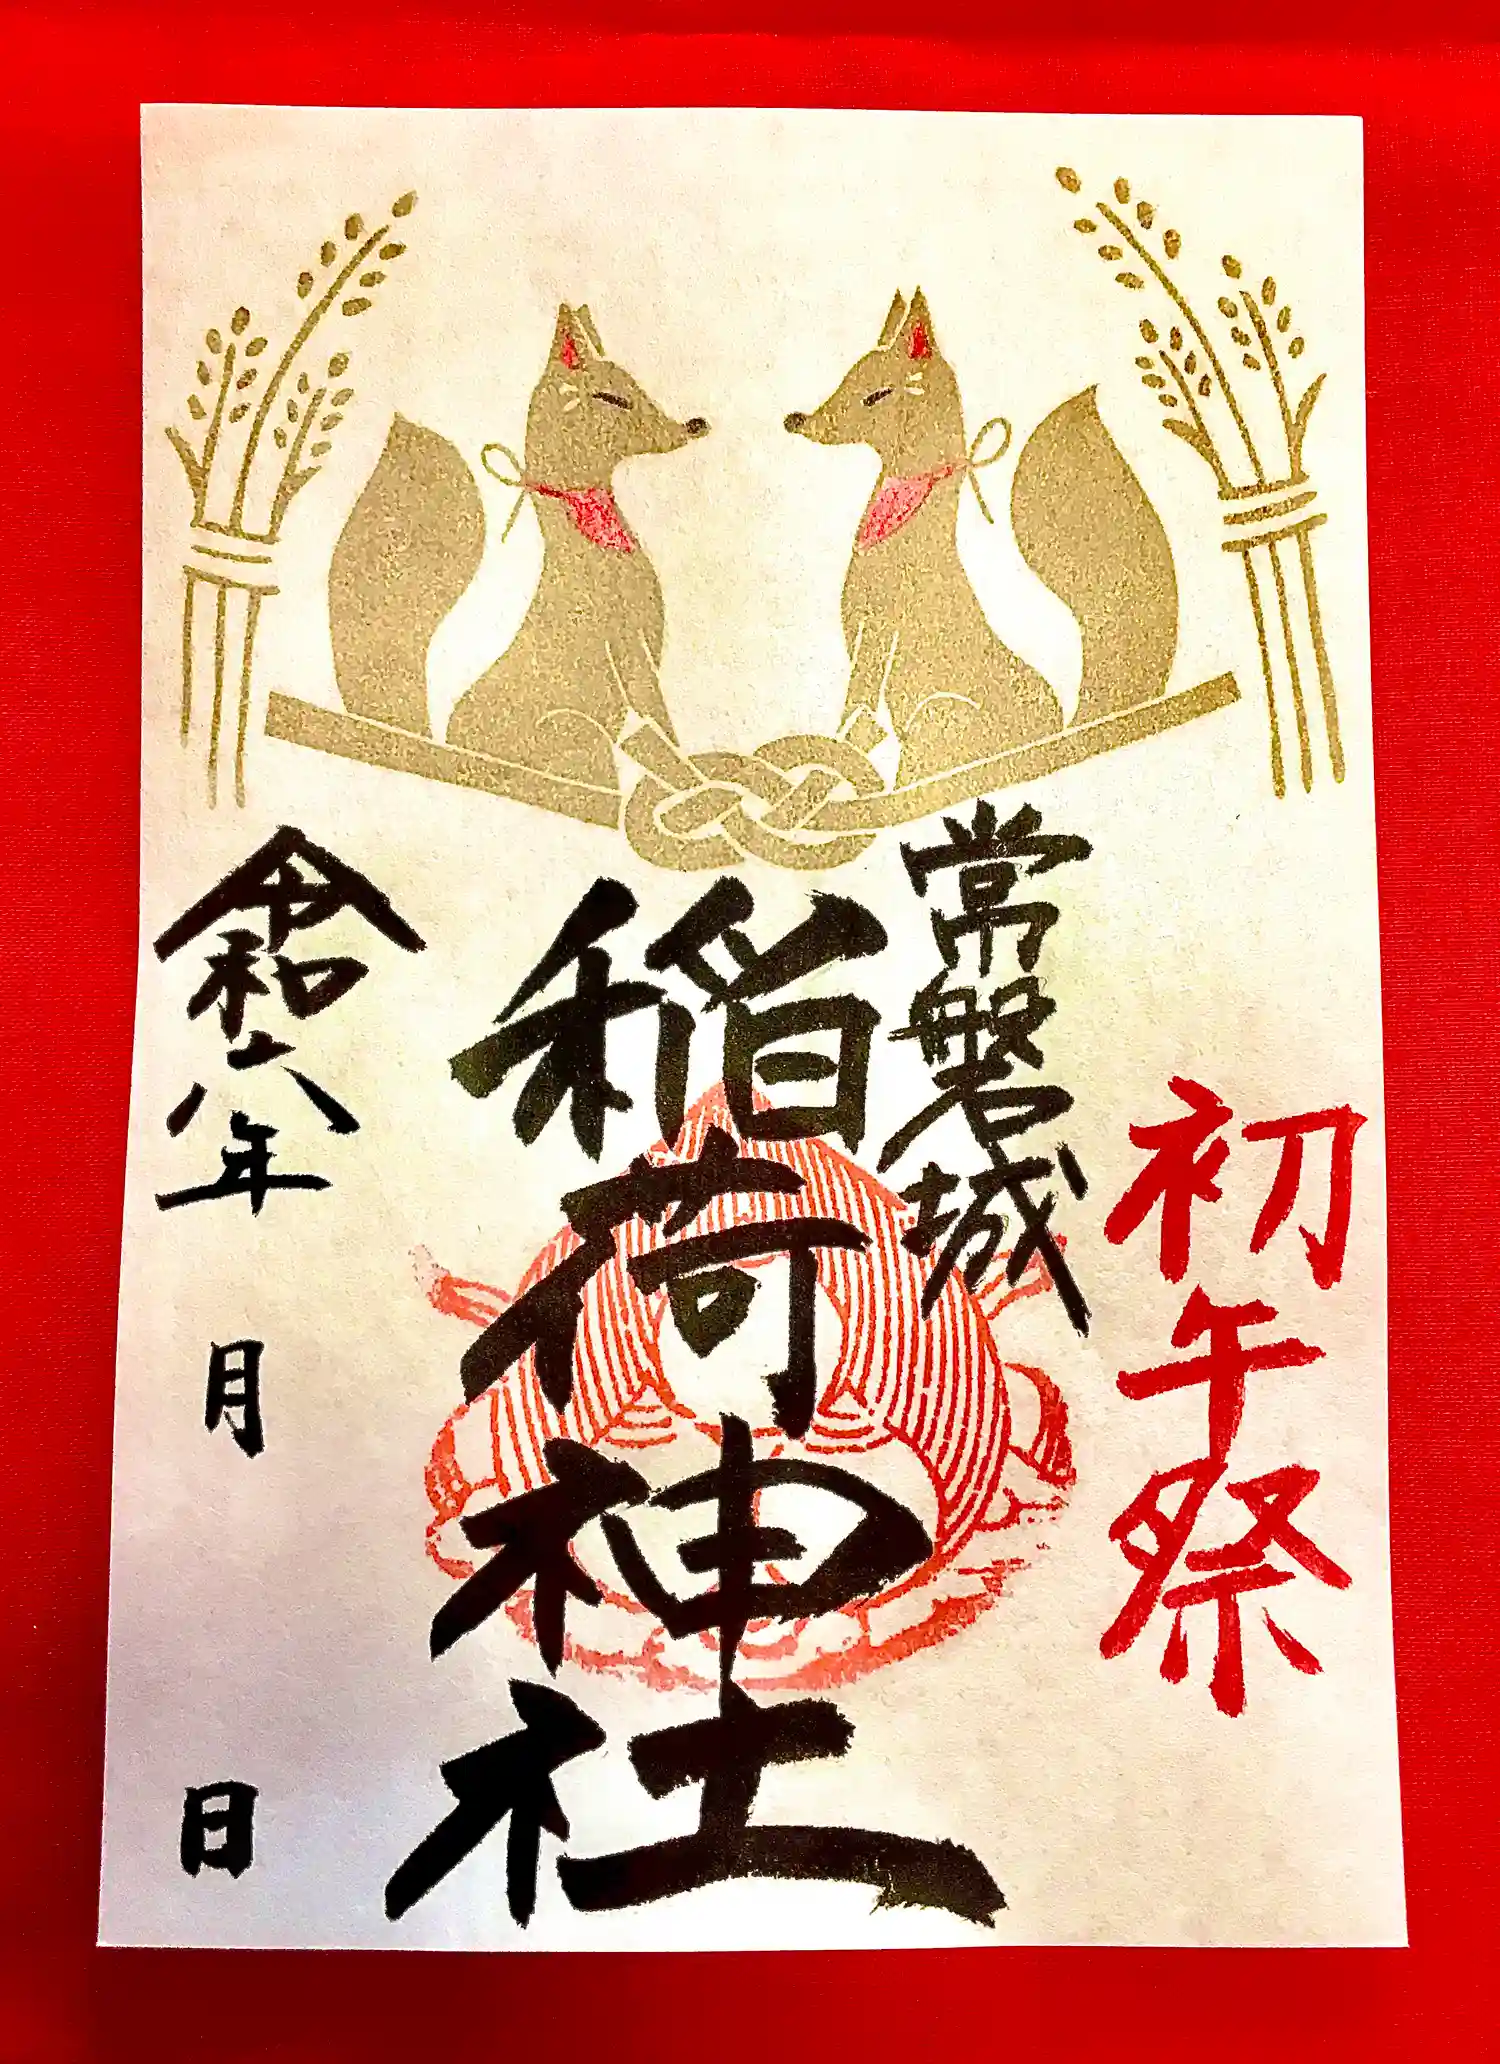 初午祭
常磐城
稲荷神社
令和六年
月
日